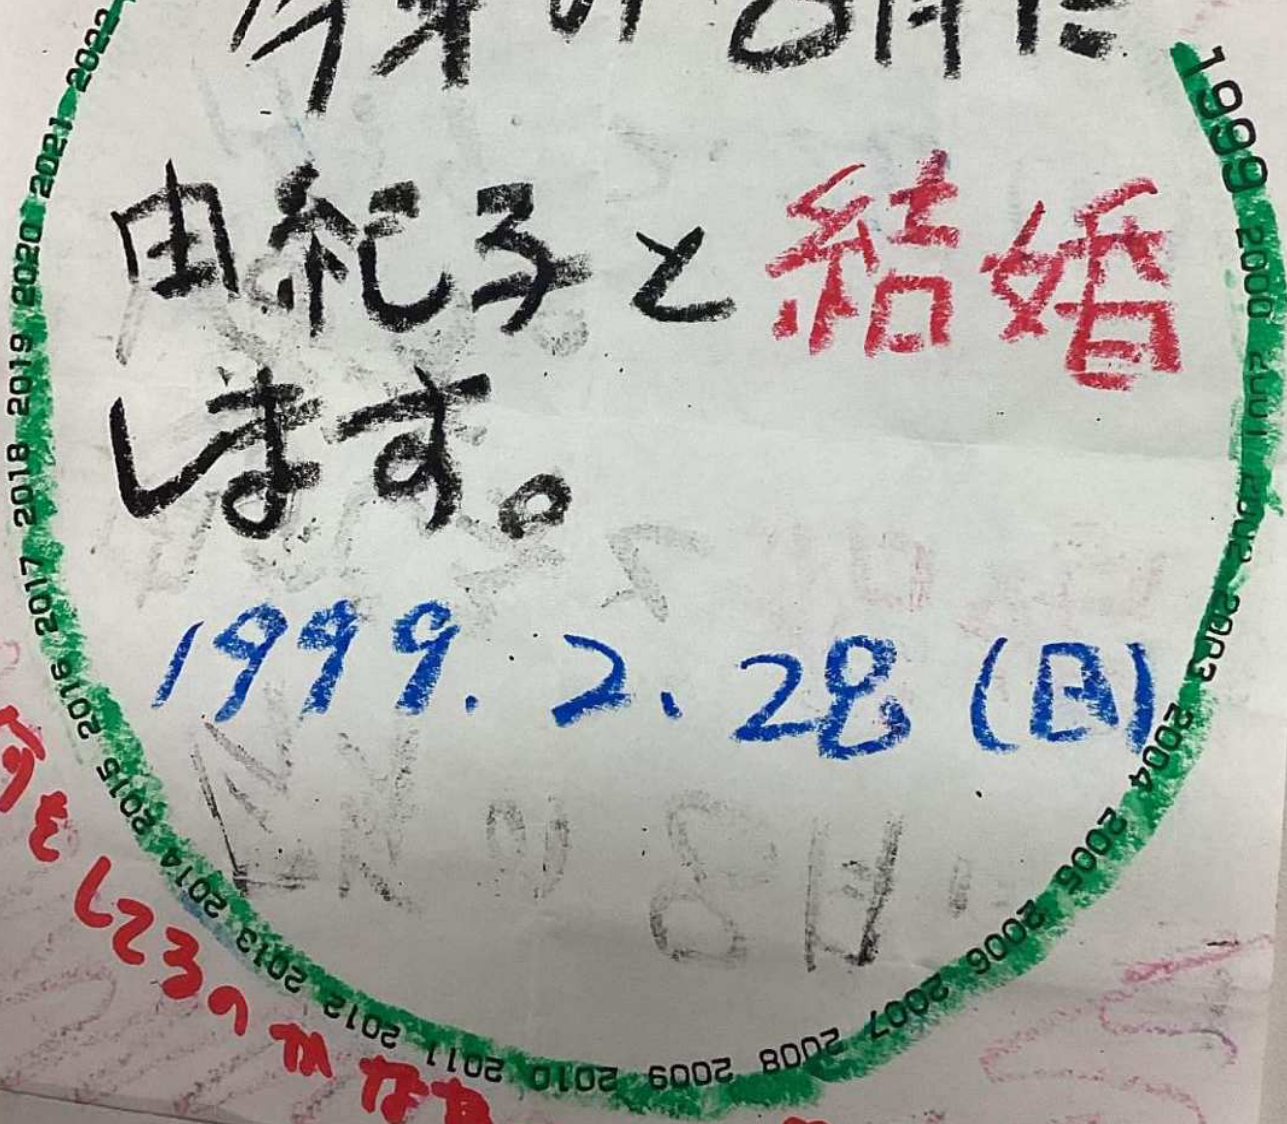 今年の8月に
由紀子と結婚
します。
1999.2.28(日)
1999 2000 2001 2002 2003 2004 2005 2006 2007 2008 2009 2010 2011 2012 2013 2014 2015 2016 2017 2018 2019 2020 2021 2022
何をしてるのかなぁ